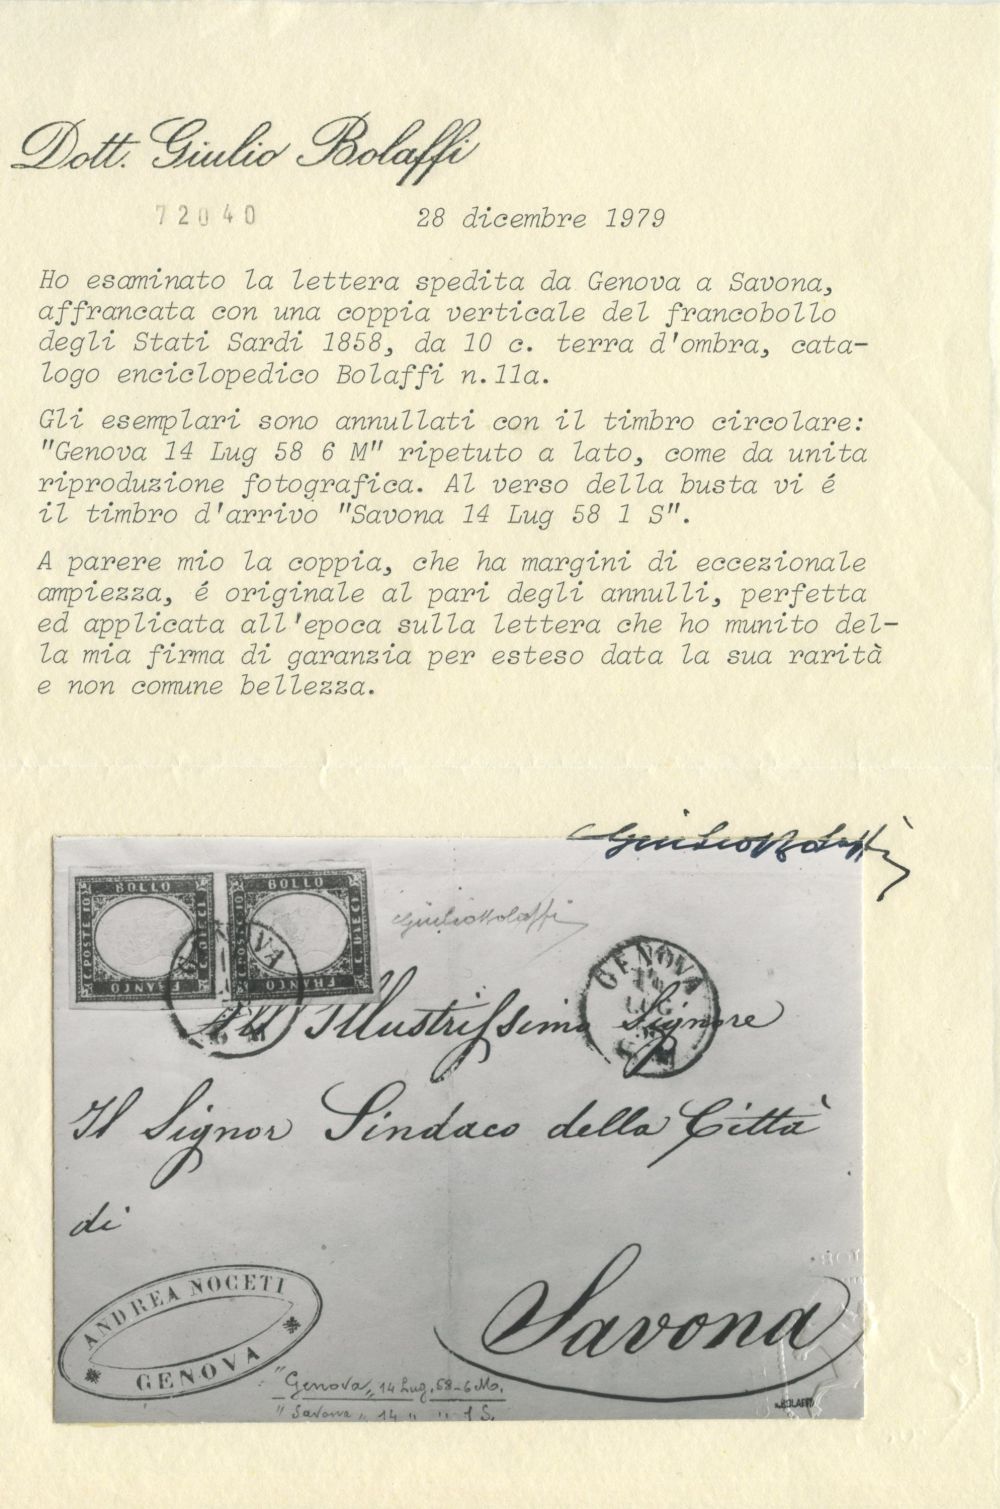 Dott. Giulio Bolaffi
72040 28 dicembre 1979
Ho esaminato la lettera spedita da Genova a Savona,
affrancata con una coppia verticale del francobollo
degli Stati Sardi 1858, da 10 c. terra d'ombra, cata-
logo enciclopedico Bolaffi n.11a.
Gli esemplari sono annullati con il timbro circolare:
"Genova 14 Lug 58 6 M" ripetuto a lato, come da unita
riproduzione fotografica. Al verso della busta vi é
il timbro d'arrivo "Savona 14 Lug 58 1 S".
A parere mio la coppia, che ha margini di eccezionale
ampiezza, é originale al pari degli annulli, perfetta
ed applicata all'epoca sulla lettera che ho munito del-
la mia firma di garanzia per esteso data la sua rarità
e non comune bellezza.
Giulio Bolaffi
BOLLO BOLLO
C.POSTE 10 C.DIECI C.POSTE 10 C.DIECI
FRANCO FRANCO
Giulio Bolaffi
GENOVA
All' Illustrissimo Signore
Il Signor Sindaco della Città
di
Savona
ANDREA NOCETI
GENOVA
"Genova" 14 Lug. 58-6M.
"Savona" 14 " " 1 S.
BOLAFFI